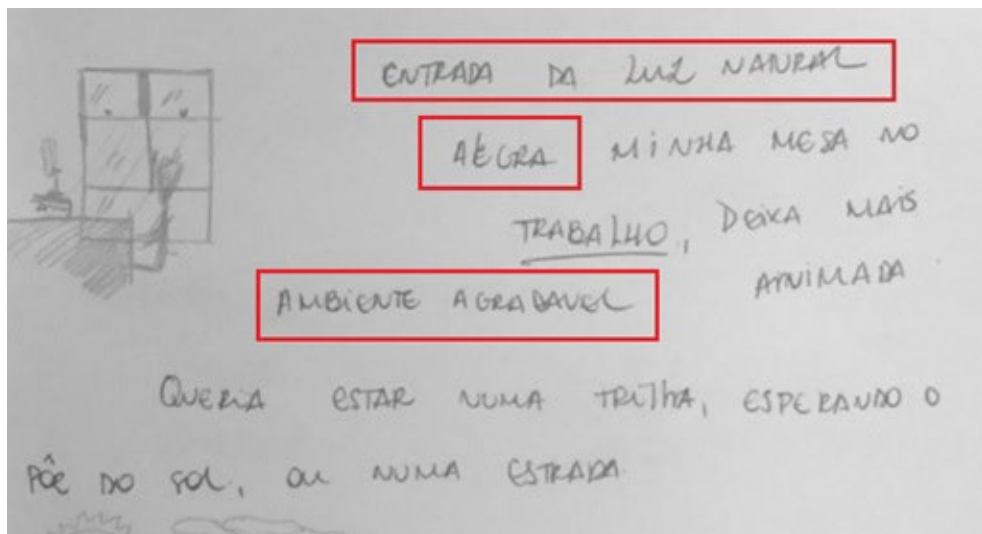 ENTRADA DA LUZ NATURAL
ALEGRA MINHA MESA NO
TRABALHO, DEIXA MAIS
ANIMADA.
AMBIENTE AGRADAVEL
QUERIA ESTAR NUMA TRILHA, ESPERANDO O
PÔE DO SOL, OU NUMA ESTRADA